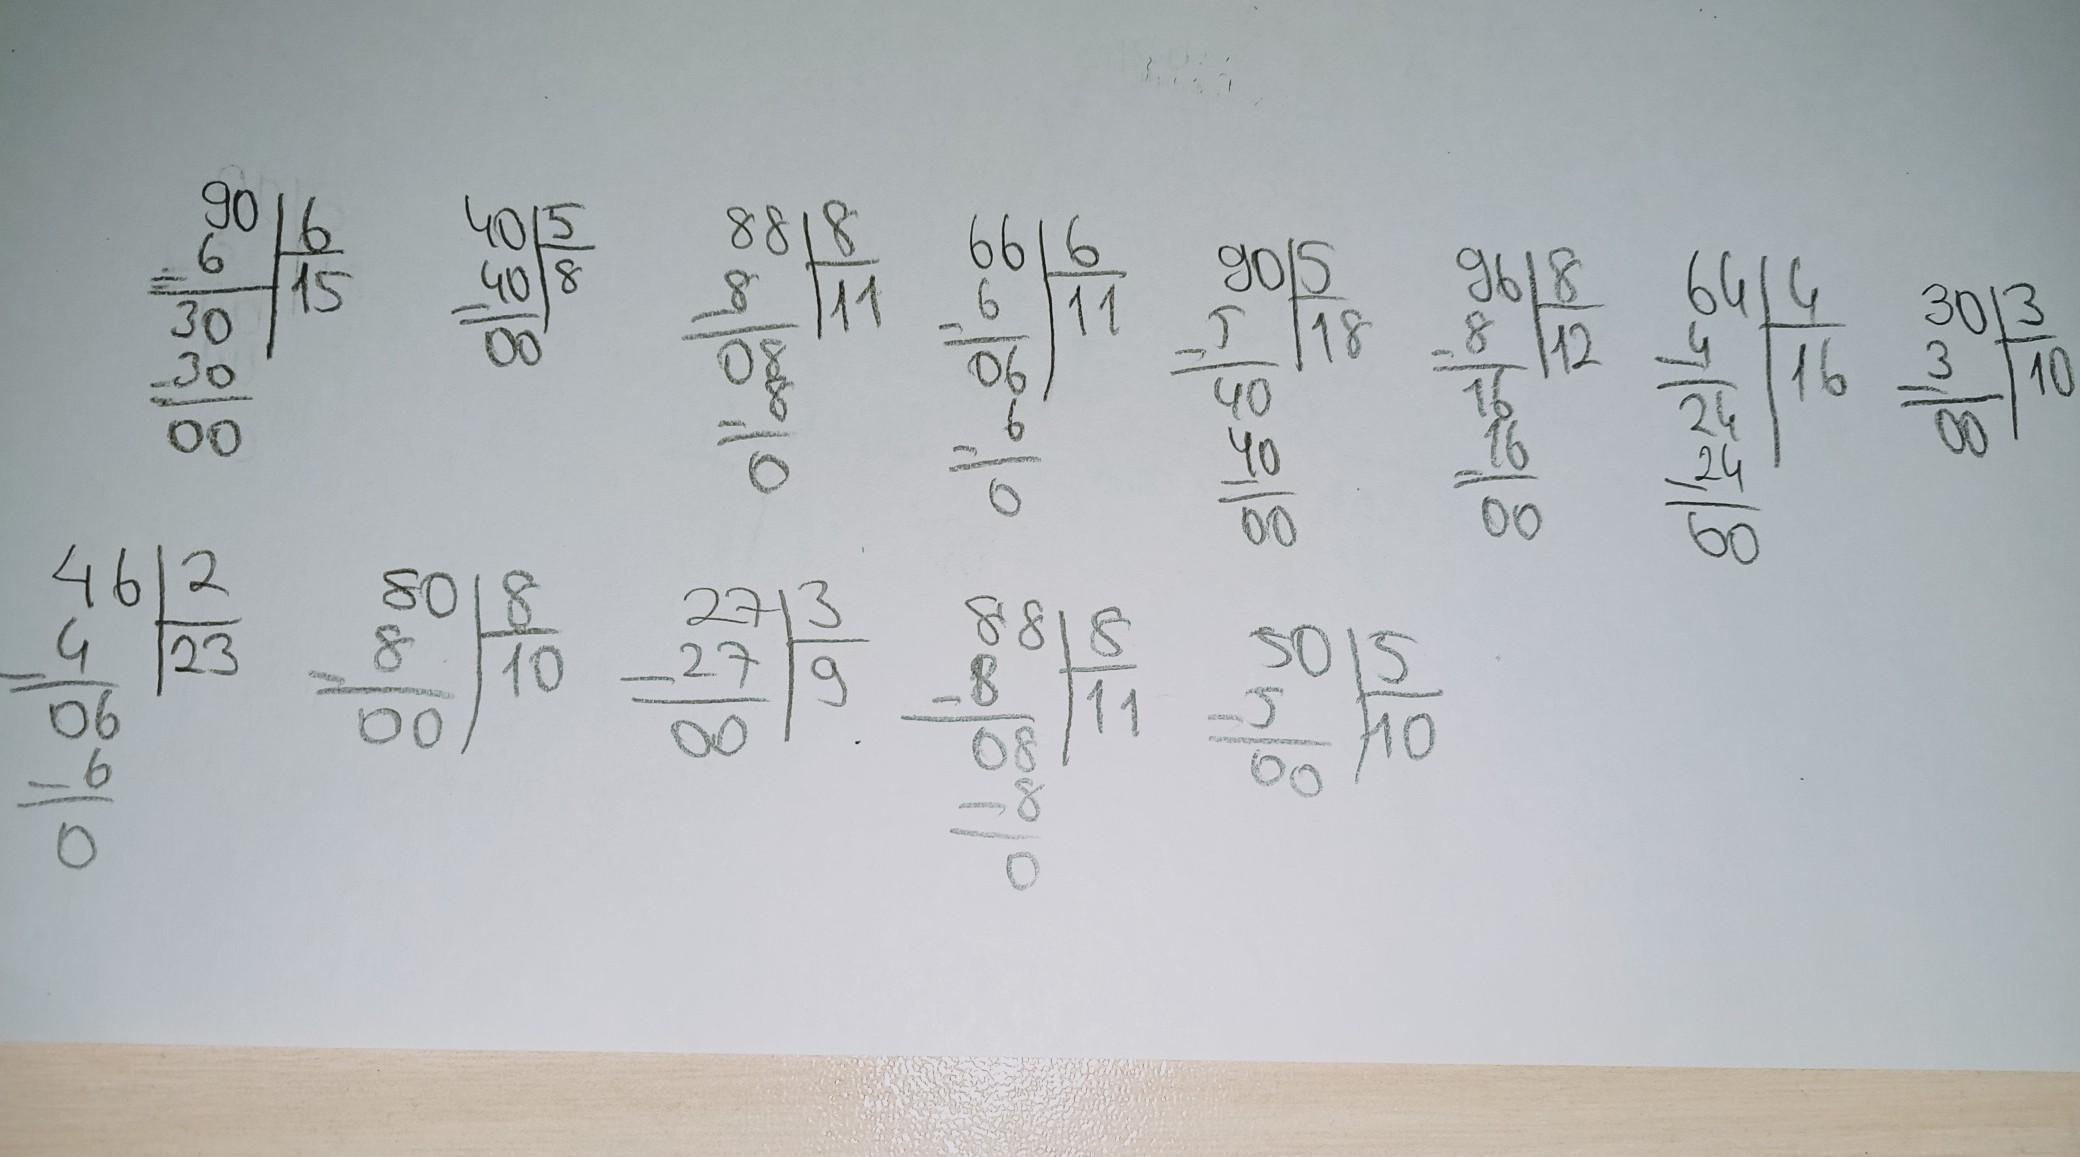 90 6 40 5 88 8 66 6 90 5 96 8 64 4 30 3
6 15 40 8 8 11 6 11 5 18 8 12 4 16 3 10
30 00 08 06 40 16 24 00
30 8 6 40 16 24
00 0 0 00 00 00
46 2 80 8 27 3 88 8 50 5
4 23 8 10 27 9 8 11 5 10
06 00 00 08 00
6 8
0 0